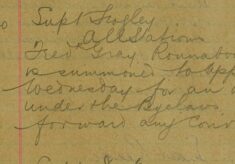 o Supt Smgley
All Stations
Fred Gray. Roundabou
is summoned to app
Wednesday for an o
under the Byelaws
forward any Conv